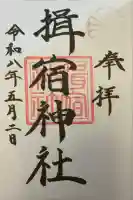 奉拝
揖宿神社
令和八年五月二日